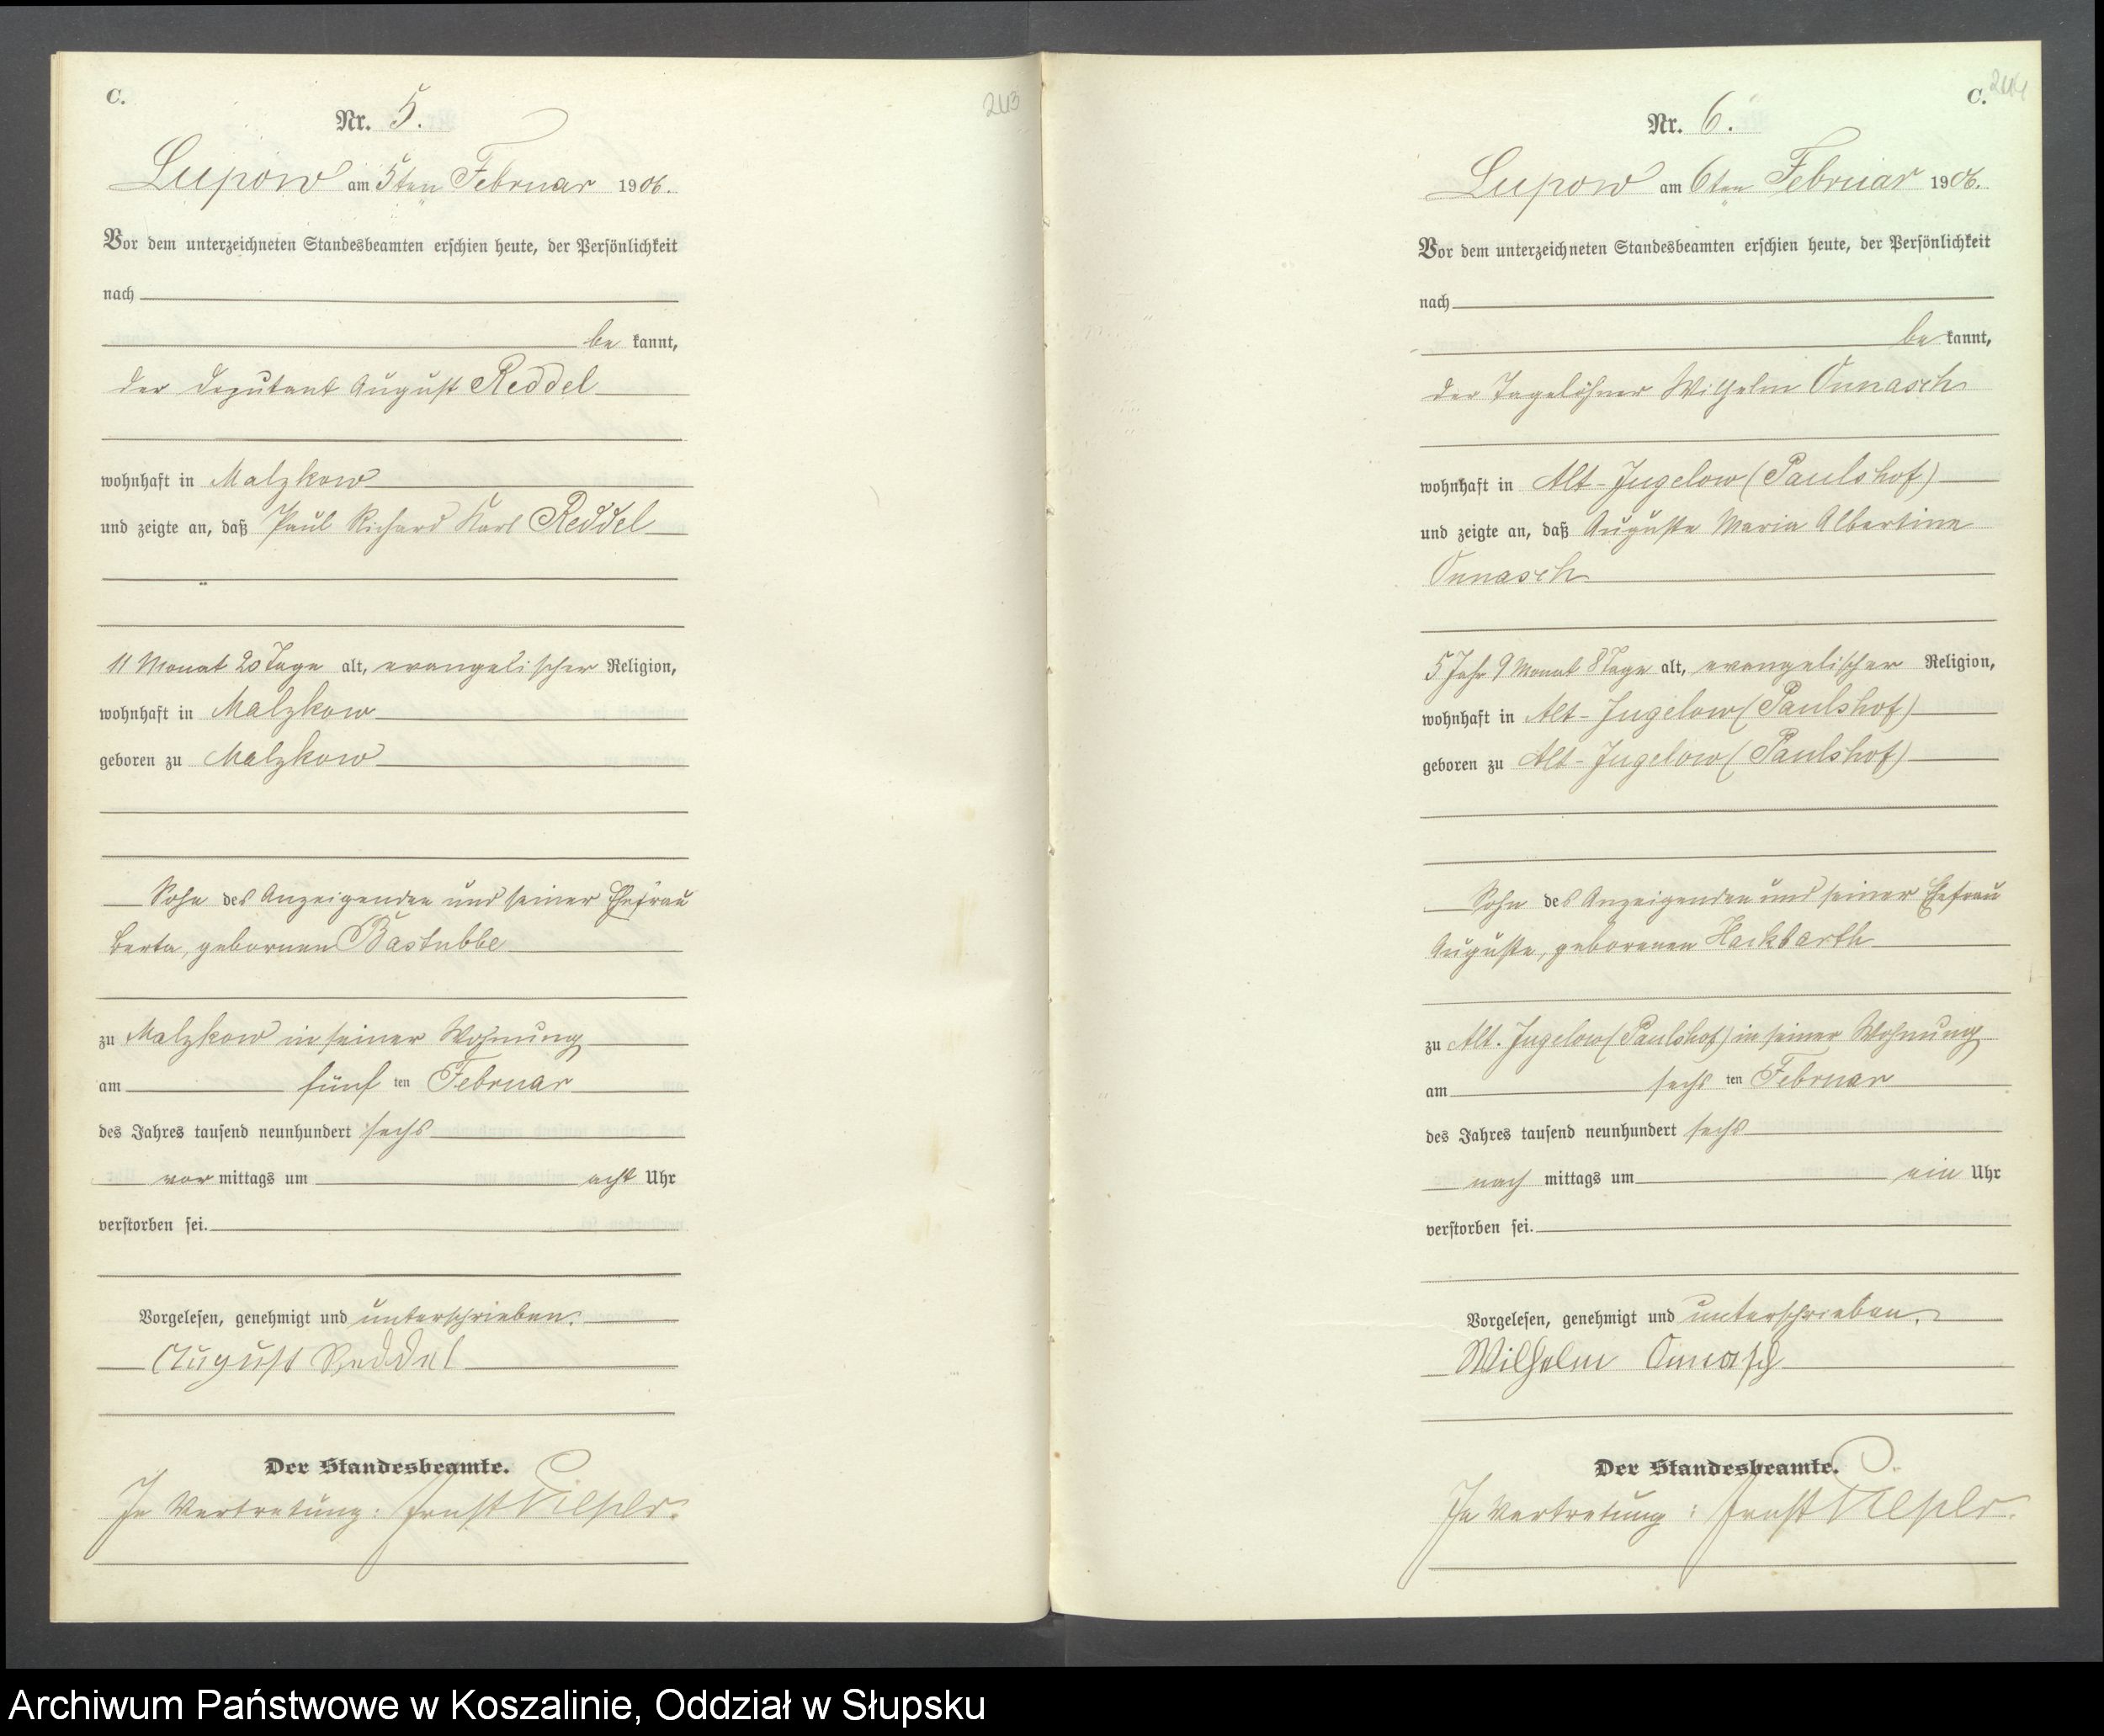 C.
Nr. 5.
Lupow am 5ten Februar 1906.
Vor dem unterzeichneten Standesbeamten erschien heute, der Persönlichkeit
nach
be kannt,
der Deputant August Reddel
wohnhaft in Malzkow
und zeigte an, daß Paul Richard Karl Reddel
11 Monat 20 Tage alt, evangelischer Religion,
wohnhaft in Malzkow
geboren zu Malzkow
Sohn des Anzeigenden und seiner Ehefrau
Berta, gebornen Bastubbe
zu Malzkow in seiner Wohnung
am fünf ten Februar
des Jahres tausend neunhundert sechs
vor mittags um acht Uhr
verstorben sei.
Vorgelesen, genehmigt und unterschrieben.
August Reddel
Der Standesbeamte.
In Vertretung: Ernst Pieper.
243
C. 244
Nr. 6.
Lupow am 6ten Februar 1906.
Vor dem unterzeichneten Standesbeamten erschien heute, der Persönlichkeit
nach
be kannt,
der Tagelöhner Wilhelm Onnasch
wohnhaft in Alt-Jugelow (Paulshof)
und zeigte an, daß Auguste Maria Albertine
Onnasch
5 Jahr 9 Monat 8 Tage alt, evangelischer Religion,
wohnhaft in Alt-Jugelow (Paulshof)
geboren zu Alt-Jugelow (Paulshof)
Sohn des Anzeigenden und seiner Ehefrau
Auguste, geborenen Hackbarth
zu Alt-Jugelow (Paulshof) in seiner Wohnung
am sechs ten Februar
des Jahres tausend neunhundert sechs
nach mittags um ein Uhr
verstorben sei.
Vorgelesen, genehmigt und unterschrieben.
Wilhelm Onnasch
Der Standesbeamte.
In Vertretung: Ernst Pieper.
Archiwum Państwowe w Koszalinie, Oddział w Słupsku